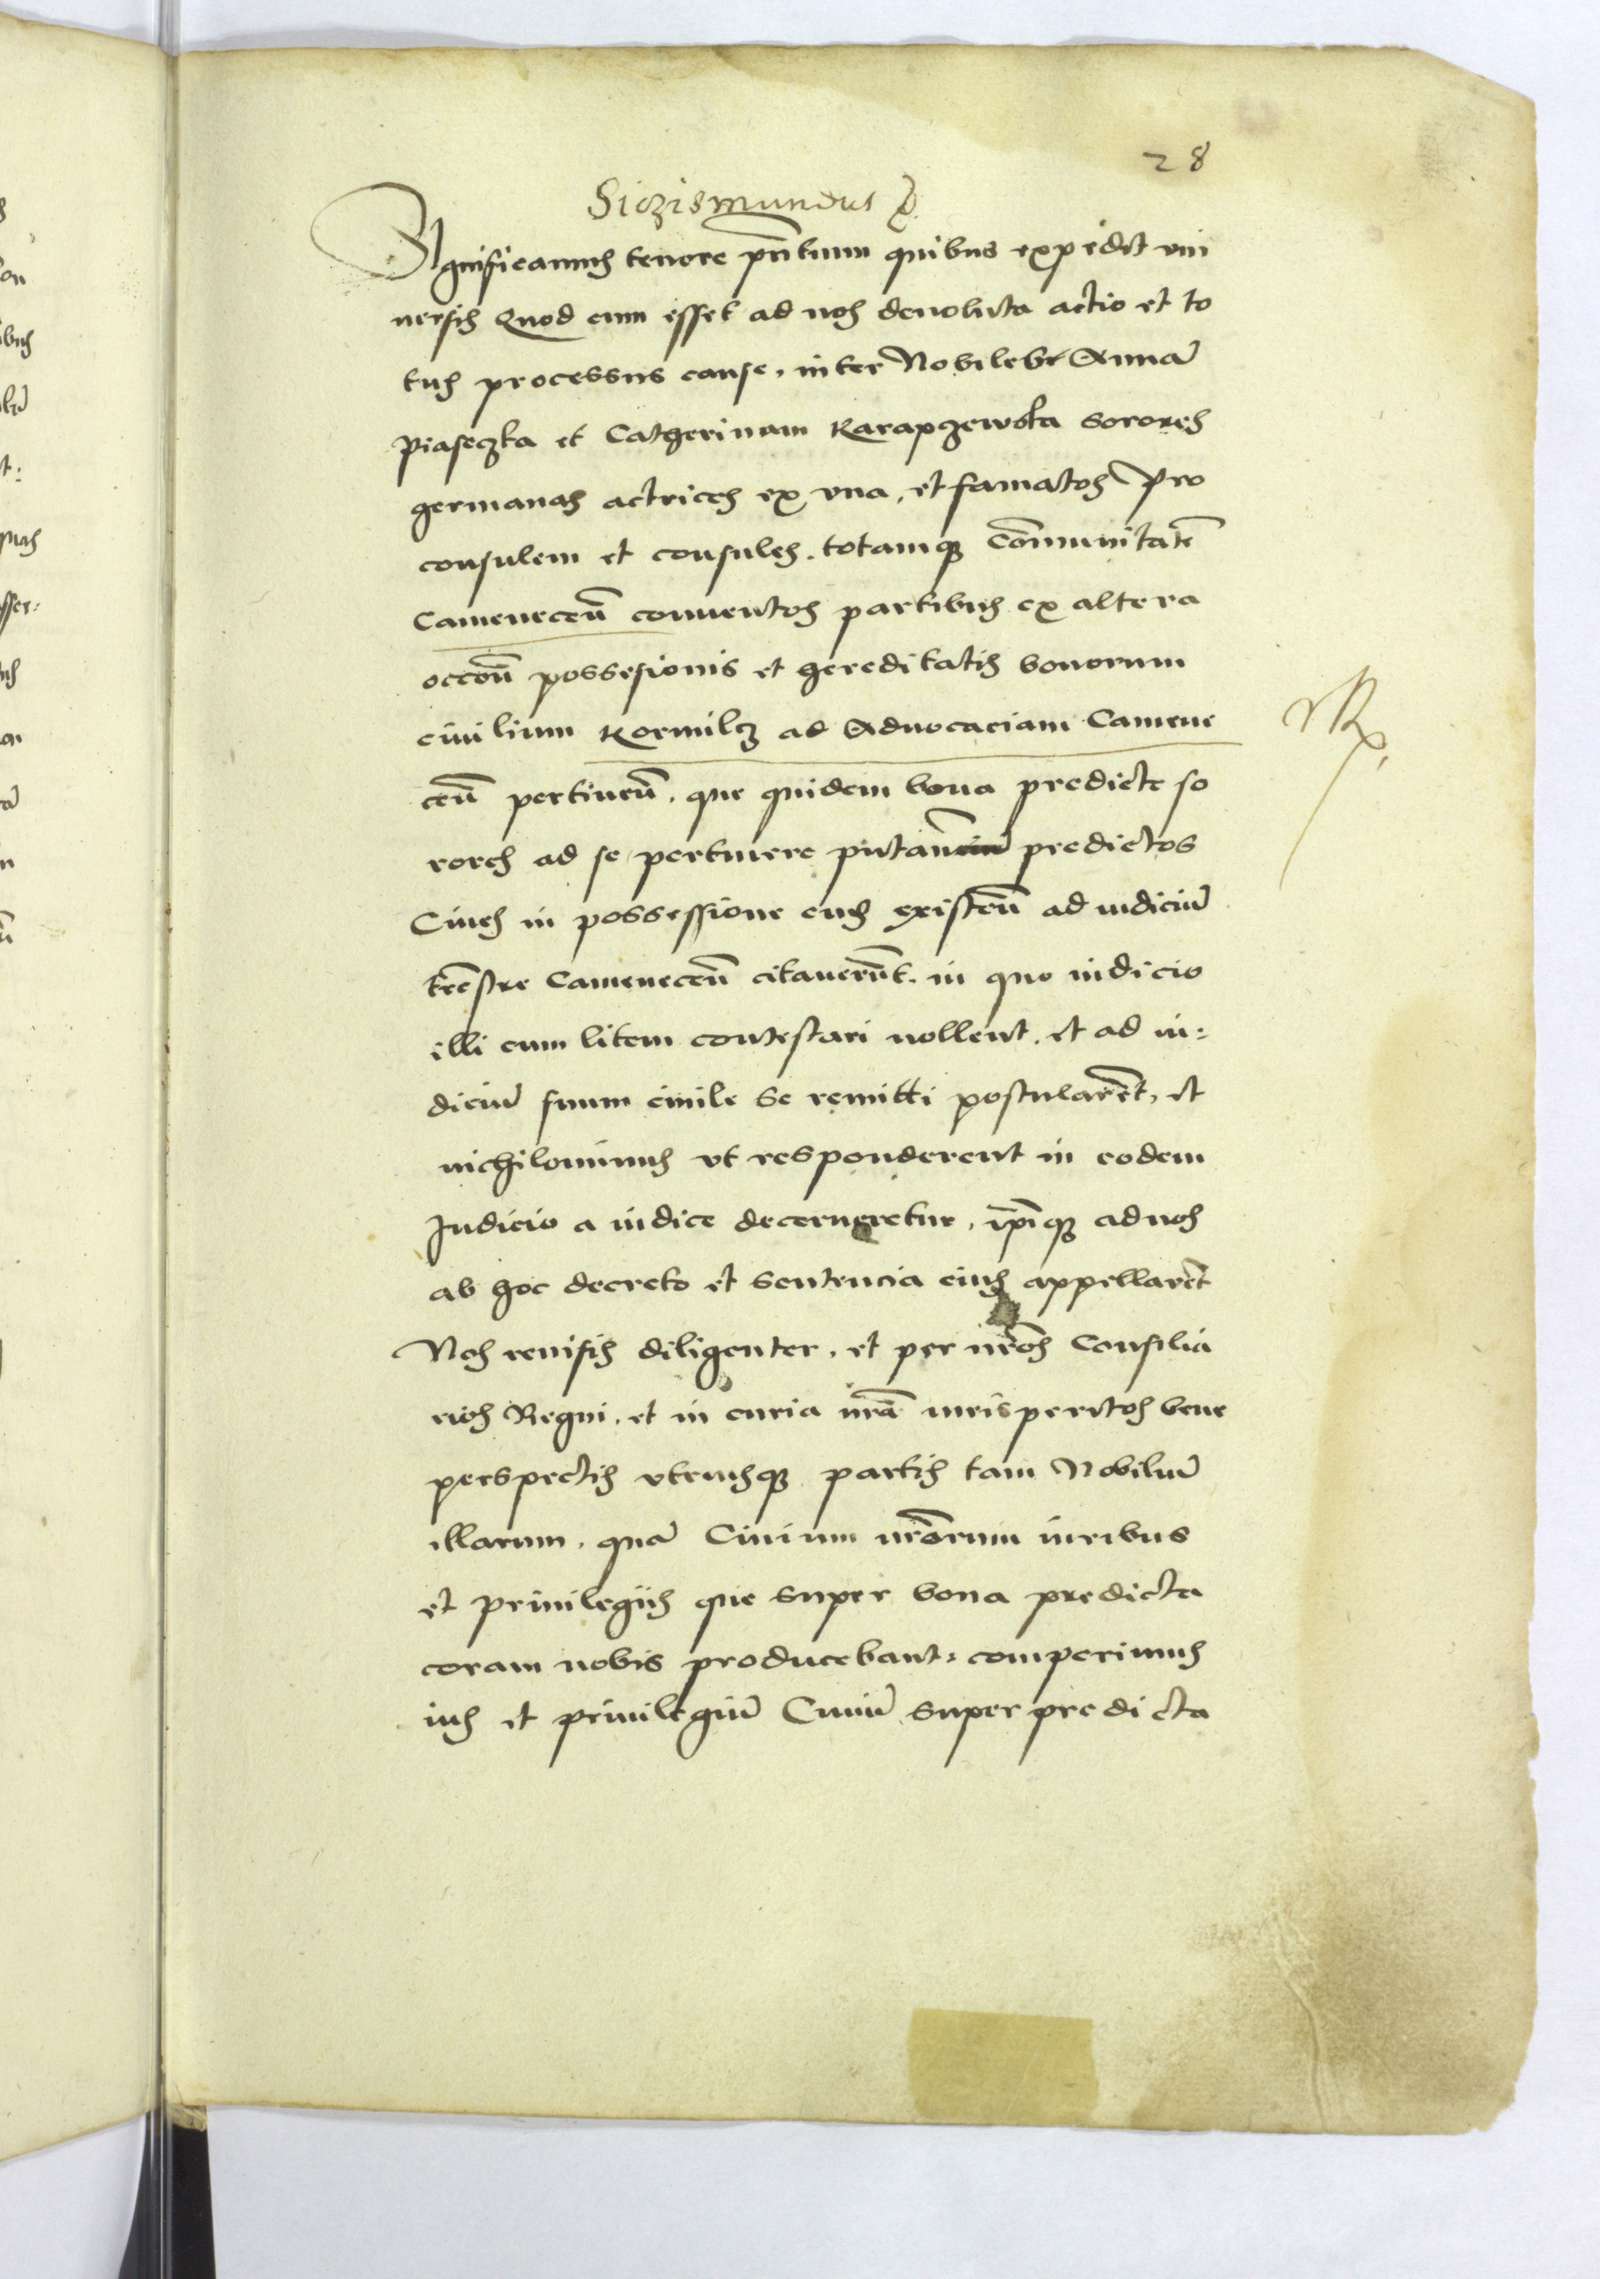 28
Sigismundus
Significamus tenore pntium quibus expedit vni
uersis Quod cum esset ad nos deuoluta actio et to
tus processus cause, inter Nobiles Annā
Piaseczka et Catherinam Karapczewska sorores
germanas actrices ex vna, et famatos Pro
consulem et consules, totamqz Cōmunitatē
Cameneceñ conuentos partibus ex altera
occoñe possesionis et hereditatis bonorum
ciuilium Kormilcz ad Aduocaciam Camene
ceñ pertineñ, que quidem bona predicte so
rores ad se pertinere putañ predictos
Ciues in possessione eius existeñ ad iudiciū
trēstre Cameneceñ citauerūt, in quo iudicio
illi cum litem contestari nollent, et ad iu=
diciū suum ciuile se remitti postularēt, et
nichilominus vt responderent in eodem
Iudicio a iudice decerneretur, ipiqz ad nos
ab hoc decreto et sentencia eius appellarēt
Nos reuisis diligenter, et per nrōs Consilia
rios Regni, et in curia nrā iurisperitos bene
perspectis vtriusqz partis tam Nobiliū
illarum, quā Ciuium nrōrum iuribus
et priuilegiis que super bona predicta
coram nobis producebant, comperimus
ius et priuilegiū Ciuiū super predicta